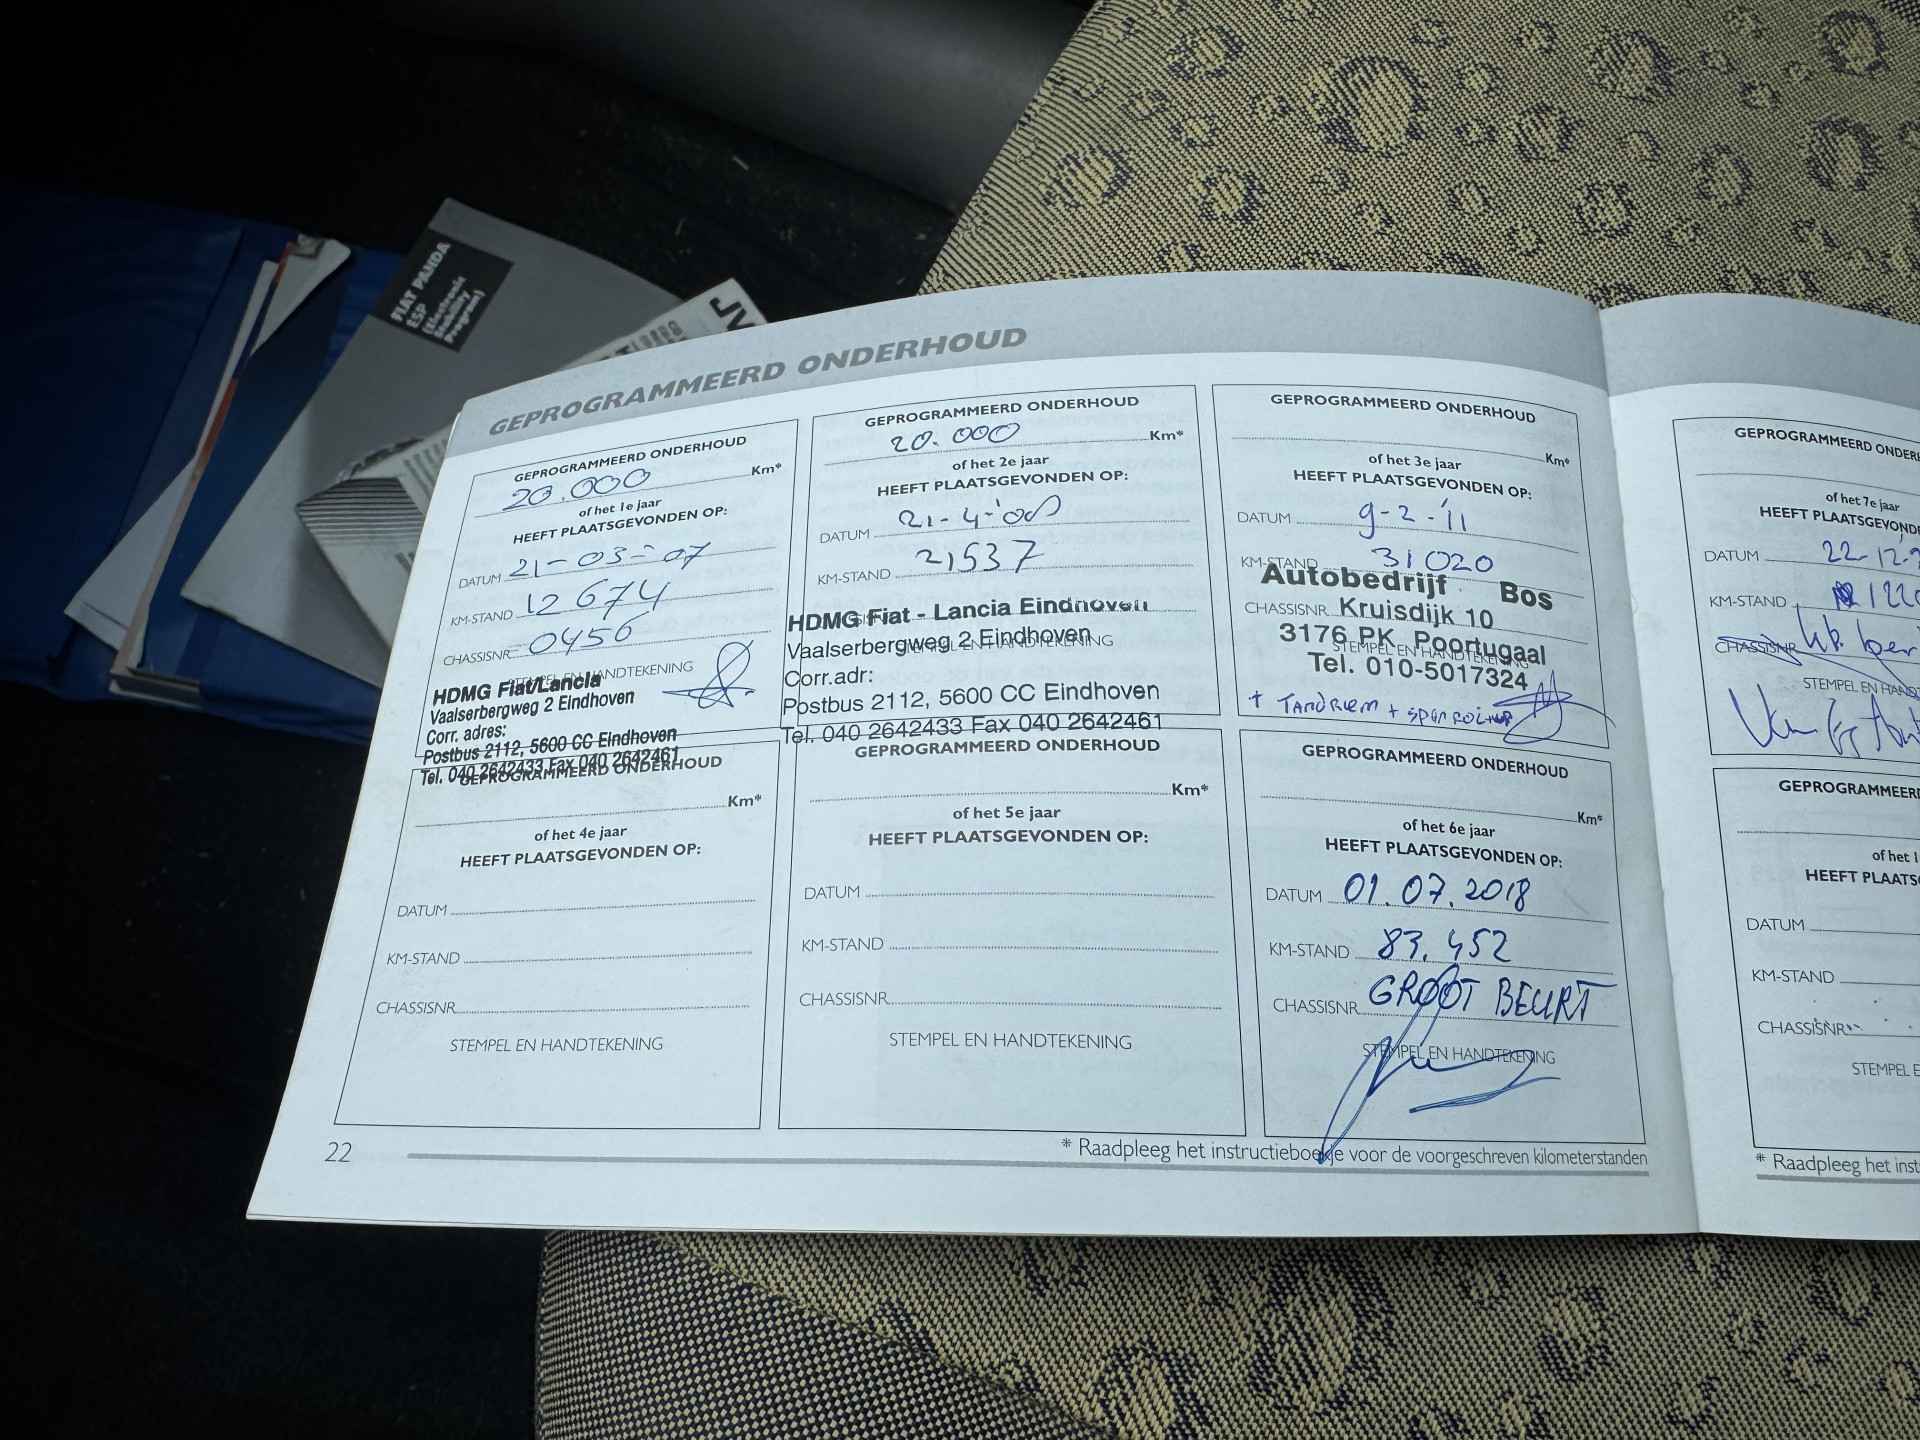 FIAT PANDA
ESP
(Electronic
Stability
Program)
JV
GEPROGRAMMEERD ONDERHOUD
GEPROGRAMMEERD ONDERHOUD
20.000 Km*
of het 1e jaar
HEEFT PLAATSGEVONDEN OP:
DATUM 21-03-07
KM-STAND 12674
CHASSISNR. 0456
STEMPEL EN HANDTEKENING
HDMG Fiat/Lancia
Vaalserbergweg 2 Eindhoven
Corr. adres:
Postbus 2112, 5600 CC Eindhoven
Tel. 040 2642433 Fax 040 2642461
GEPROGRAMMEERD ONDERHOUD
20.000 Km*
of het 2e jaar
HEEFT PLAATSGEVONDEN OP:
DATUM 21-4-'08
KM-STAND 21537
HDMG Fiat - Lancia Eindhoven
Vaalserbergweg 2 Eindhoven
STEMPEL EN HANDTEKENING
Corr.adr:
Postbus 2112, 5600 CC Eindhoven
Tel. 040 2642433 Fax 040 2642461
GEPROGRAMMEERD ONDERHOUD
Km*
of het 3e jaar
HEEFT PLAATSGEVONDEN OP:
DATUM 9-2-'11
KM-STAND 31020
Autobedrijf Bos
CHASSISNR. Kruisdijk 10
3176 PK Poortugaal
STEMPEL EN HANDTEKENING
Tel. 010-5017324
+ TANDRIEM + SPANROL
GEPROGRAMMEERD ONDERHOUD
Km*
of het 4e jaar
HEEFT PLAATSGEVONDEN OP:
DATUM
KM-STAND
CHASSISNR.
STEMPEL EN HANDTEKENING
GEPROGRAMMEERD ONDERHOUD
Km*
of het 5e jaar
HEEFT PLAATSGEVONDEN OP:
DATUM
KM-STAND
CHASSISNR.
STEMPEL EN HANDTEKENING
GEPROGRAMMEERD ONDERHOUD
Km*
of het 6e jaar
HEEFT PLAATSGEVONDEN OP:
DATUM 01.07.2018
KM-STAND 83.452
CHASSISNR. GROOT BEURT
STEMPEL EN HANDTEKENING
22
* Raadpleeg het instructieboekje voor de voorgeschreven kilometerstanden
GEPROGRAMMEERD ONDER
of het 7e jaar
HEEFT PLAATSGEVOND
DATUM 22-12-
KM-STAND 122
CHASSISNR
STEMPEL EN HAND
GEPROGRAMMEER
of het 1
HEEFT PLAATS
DATUM
KM-STAND
CHASSISNR.
STEMPEL E
* Raadpleeg het inst